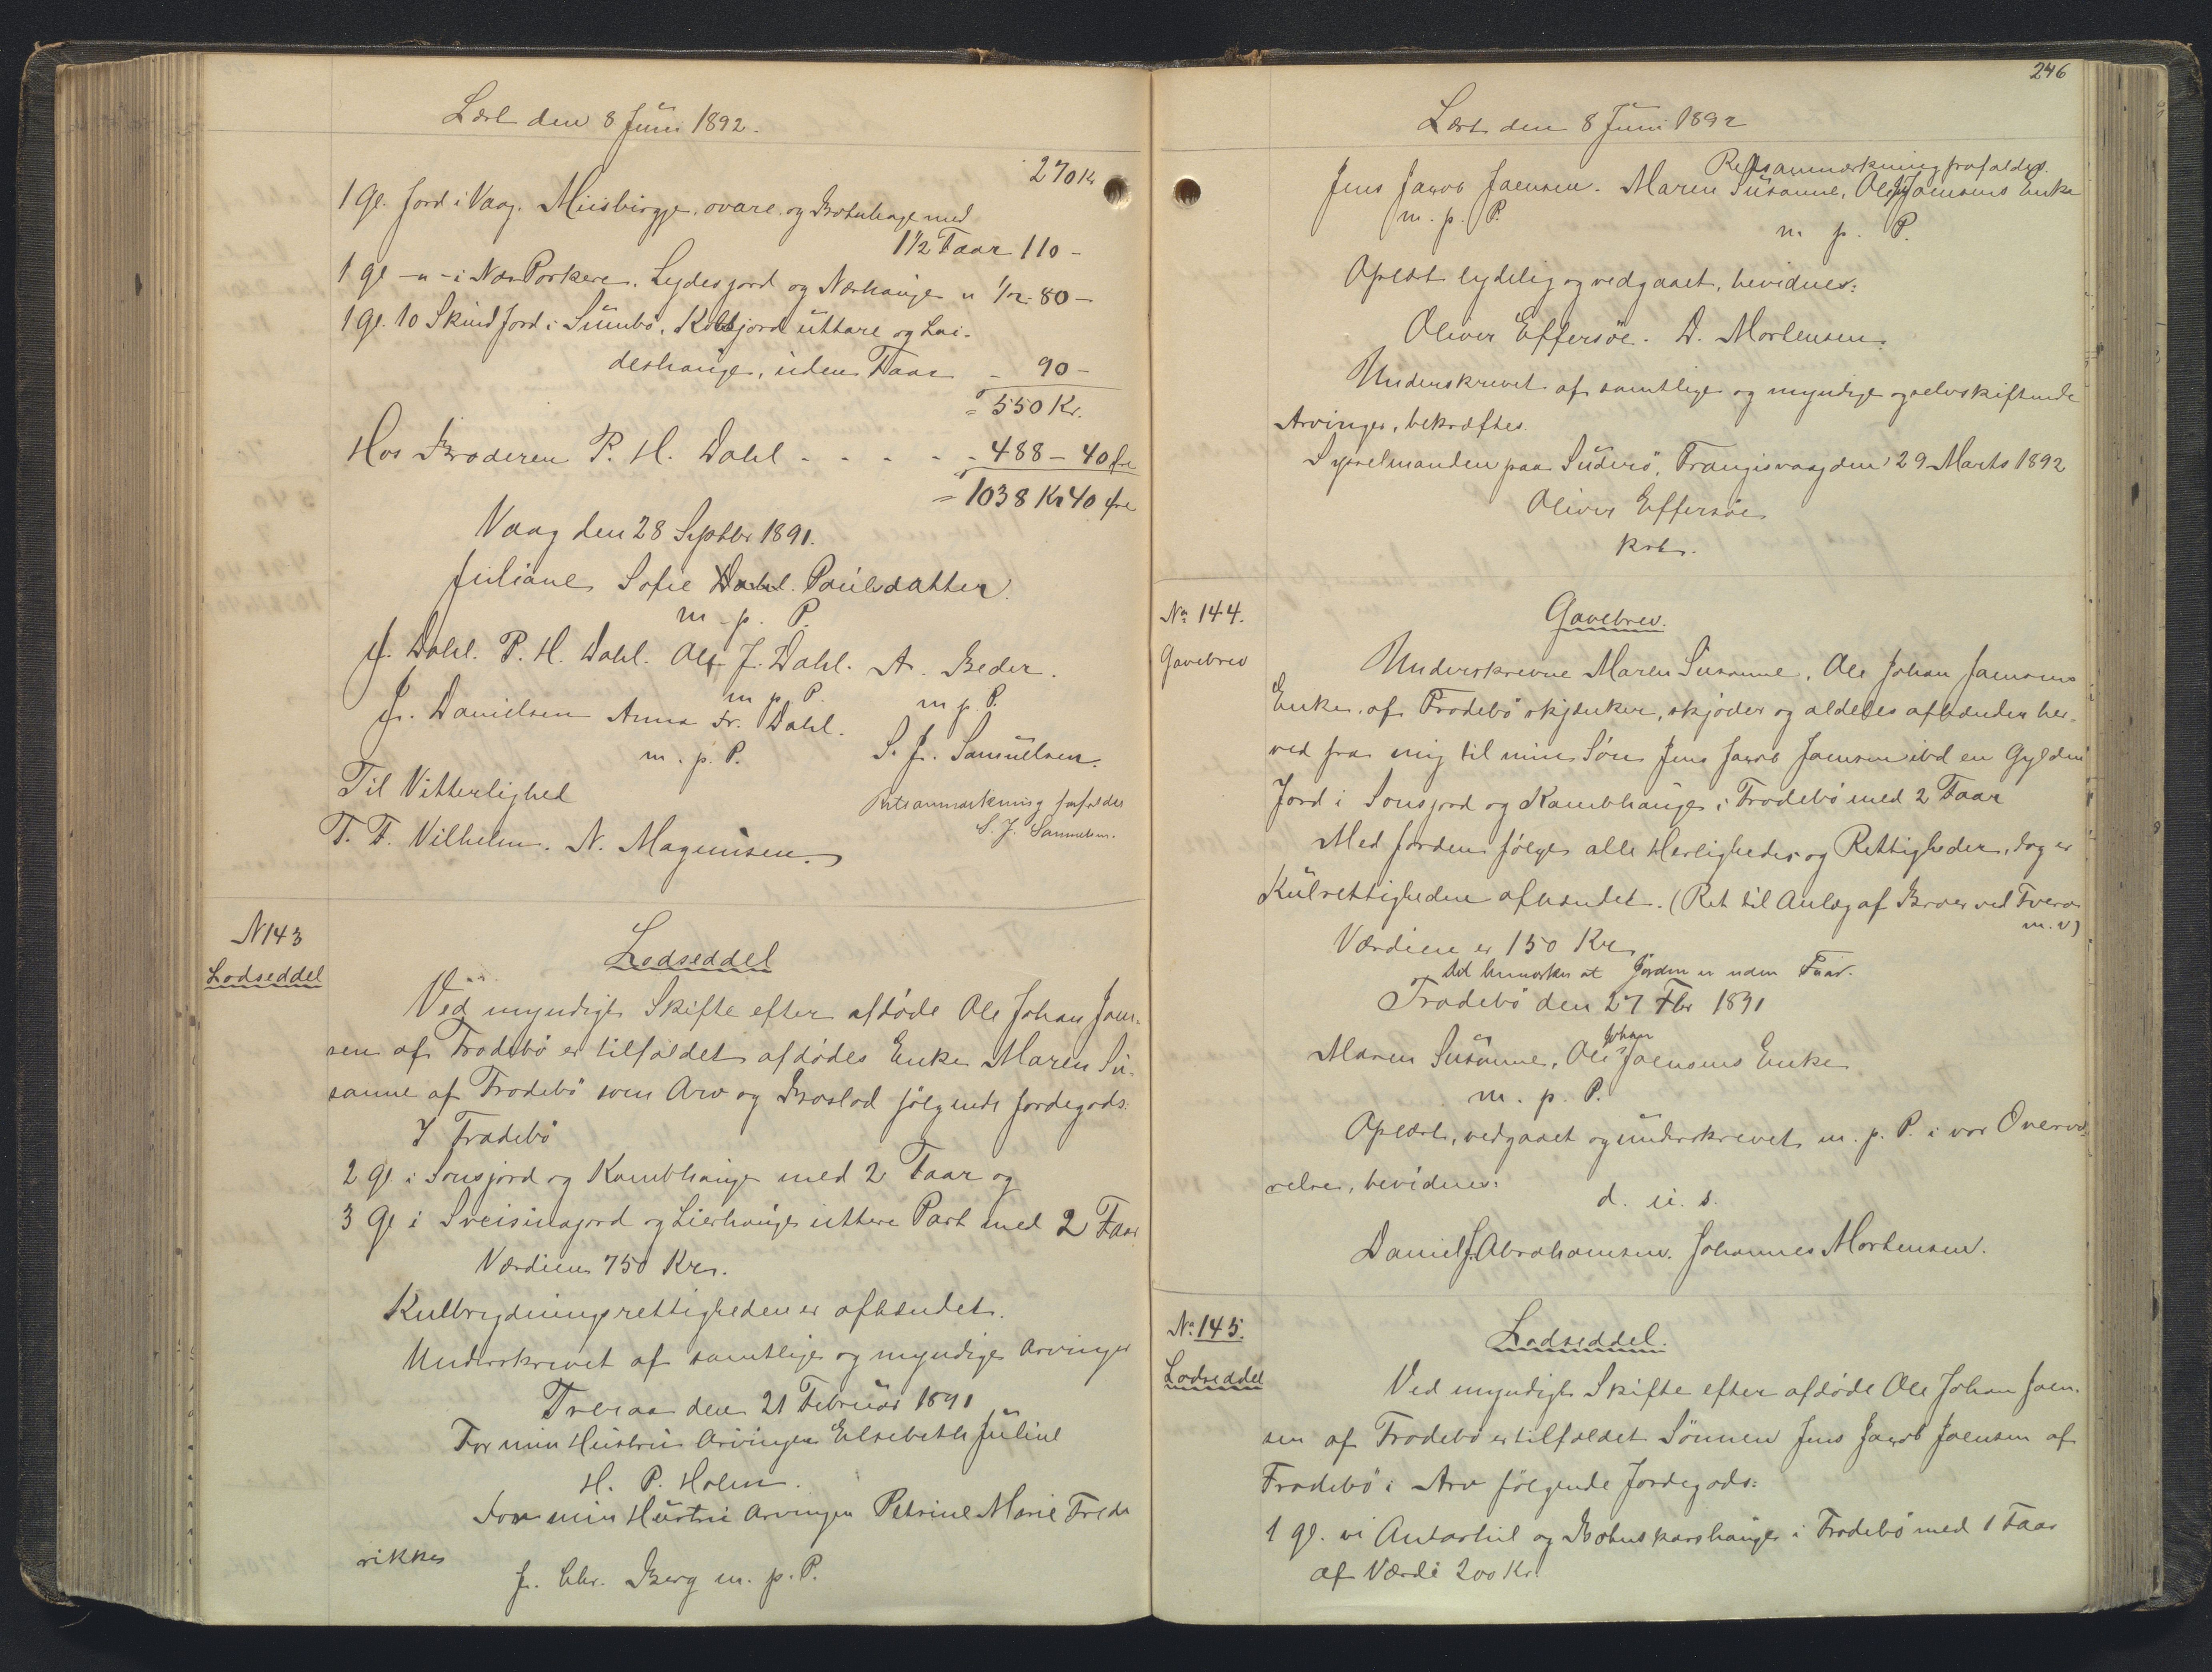 Læst den 8 Juni 1892.
270 Kr
1 Gl. Jord i Vaag. Miisbirgje, ovare og Botnhage med
1 1/2 Faar 110 -
1 Gl -"- i Nes Porkere. Lydesjord og Nerhauge " 1/2 - 80 -
1 Gl. 10 Skind Jord i Sumbø, Kolbjord uttare og Lai-
deshauge, uden Faar - 90 -
= 550 Kr.
Hos Broderen P. H. Dahl - - - - - 488 - 40 Øre
= 1038 Kr 40 Øre
Vaag den 28 Septbr 1891.
Juliane Sofie Dahl. Poulsdatter.
m. p. P.
J. Dahl. P. H. Dahl. Ole J. Dahl. A. Beder.
m p. P. m p. P.
J. Danielsen Anna Fr. Dahl.
m. p. P. S. J. Samuelsen.
Til Vitterlighed
Retsanmærkning frafaldes
S. J. Samuelsen.
T. F. Vilhelm. N. Magnusen.
N 143
Lodseddel
Lodseddel
Ved myndigt Skifte efter afdøde Ole Johan Joen-
sen af Frodebø er tilfaldet afdødes Enke Maren Su-
sanne af Frodebø som Arv og Boslod følgende Jordegods.
I Frodebø
2 Gl. i Sonsjord og Kambhauge med 2 Faar og
3 Gl i Sveisinajord og Lierhauge uttere Part med 2 Faar
Værdien 750 Kr.
Kulbrydningsrettigheden er afhændet.
Underskrevet af samtlige og myndige Arvinger
Tveraa den 21 Februar 1891
For min Hustru Arvingen Elsebeth Juline
H. P. Holm.
For min Hustru Arvingen Petrine Marie Frede
rikke
J. Chr. Berg m. p. P.
246
Læst den 8 Juni 1892
Retsanmærkning frafaldes.
Jens Jacob Joensen. Maren Susanne, Ole J. Joensens Enke
m. p. P. m p. P.
Oplæst lydelig og vedgaaet, bevidnes:
Oliver Effersøe. D. Mortensen.
Underskrevet af samtlige og myndige og selvskiftende
Arvinger, bekræftes.
Sysselmanden paa Suderø, Trangisvaag den 29 Marts 1892
Oliver Effersøe
kst.
No 144.
Gavebrev
Gavebrev.
Underskrevne Maren Susanne, Ole Johan Joensens
Enke, af Frodebø skjænker, skjøder og aldeles afhænder her-
ved fra mig til min Søn Jens Jacob Joensen ibd en Gylden
Jord i Sonsjord og Kambhauge i Frodebø med 2 Faar
Med Jorden følger alle Herligheder og Rettigheder, dog er
Kulrettigheden afhændet. (Ret til Anlæg af Broer ved Tveraa
m. v)
Værdien er 150 Kr
Det bemærkes at Jorden er uden Faar.
Frodebø den 27 Fbr 1891
Maren Susanne, Ole Johan Joensens Enke
m. p. P.
Oplæst, vedgaaet og underskrevet m. p. P. i vor Overvæ-
relse, bevidnes:
d. u. s.
Daniel J. Abrahamsen. Johannes Mortensen.
No 145.
Lodseddel
Lodseddel.
Ved myndigt Skifte efter afdøde Ole Johan Joen-
sen af Frodebø er tilfaldet Sønnen Jens Jacob Joensen af
Frodebø i Arv følgende Jordegods:
1 Gl. vi Antartül og Botnskarshauge i Frodebø med 1 Faar
af Værdi 200 Kr.